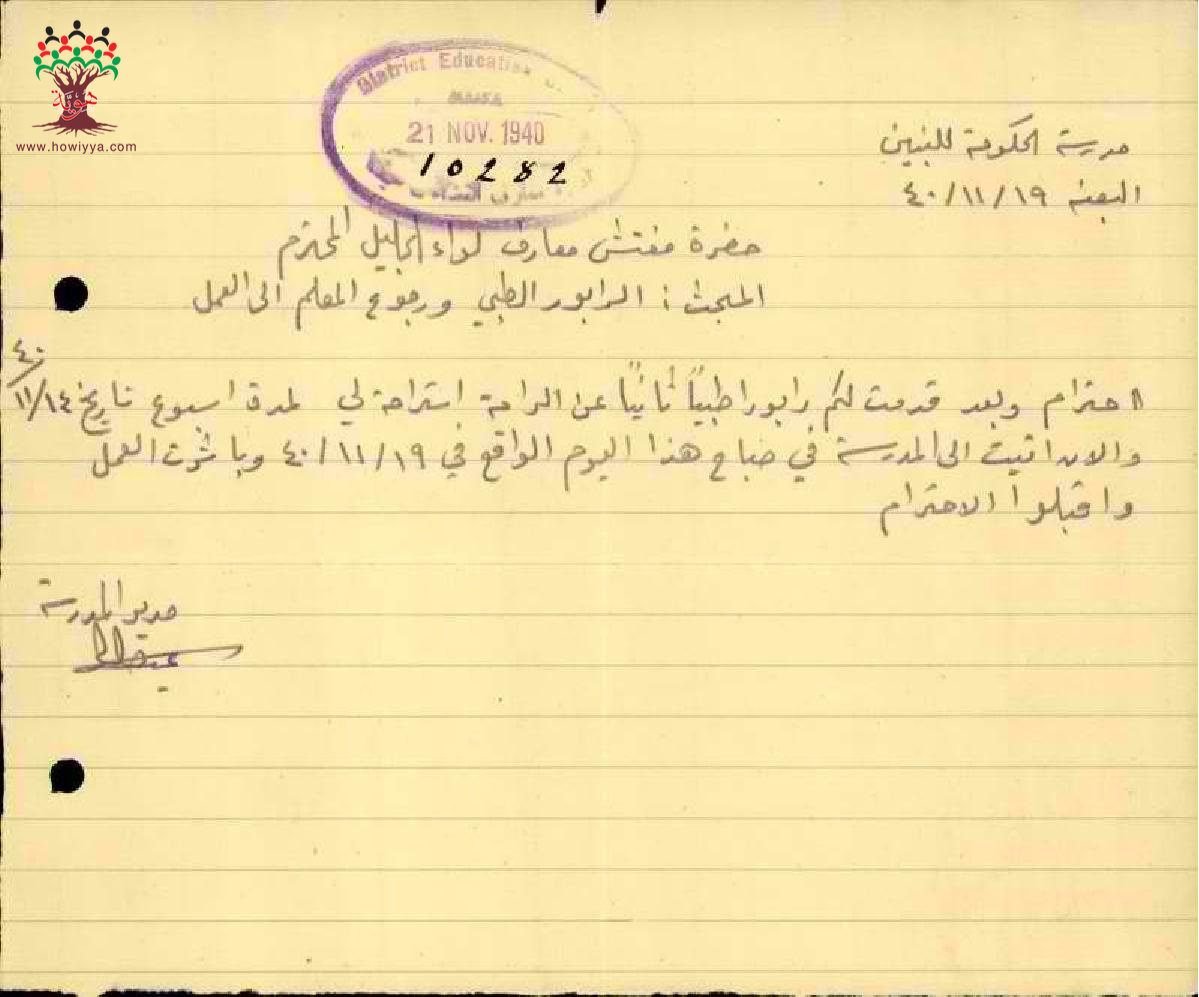 هوية
www.howiyya.com
District Education
21 NOV. 1940
10282
مدرسة الحكومة للبنين
البعنه ١٩/١١/٤٠
حضرة مفتش معارف لواء الجليل المحترم
المبحث : الرابور الطبي ورجوع المعلم الى العمل
احترام وبعد قدمت لكم رابورا طبياً ثانياً عن الراحة استراحة لي لمدة اسبوع تاريخ ١٤/١١/٤٠
والان اتيت الى المدرسة في صباح هذا اليوم الواقع في ١٩/١١/٤٠ وباشرت العمل
واقبلوا الاحترام
مدير المدرسة